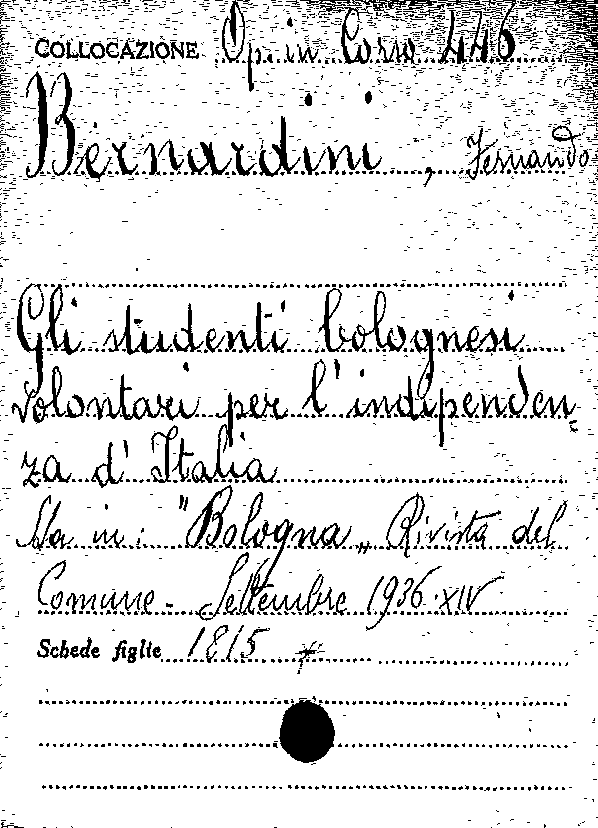 COLLOCAZIONE Op. in Corso 446
Bernardini, Fernando
Gli studenti bolognesi
volontari per l'indipenden-
za d'Italia
Sta in: "Bologna„ Rivista del
Comune - Settembre 1936-XIV
Schede figlie 1815